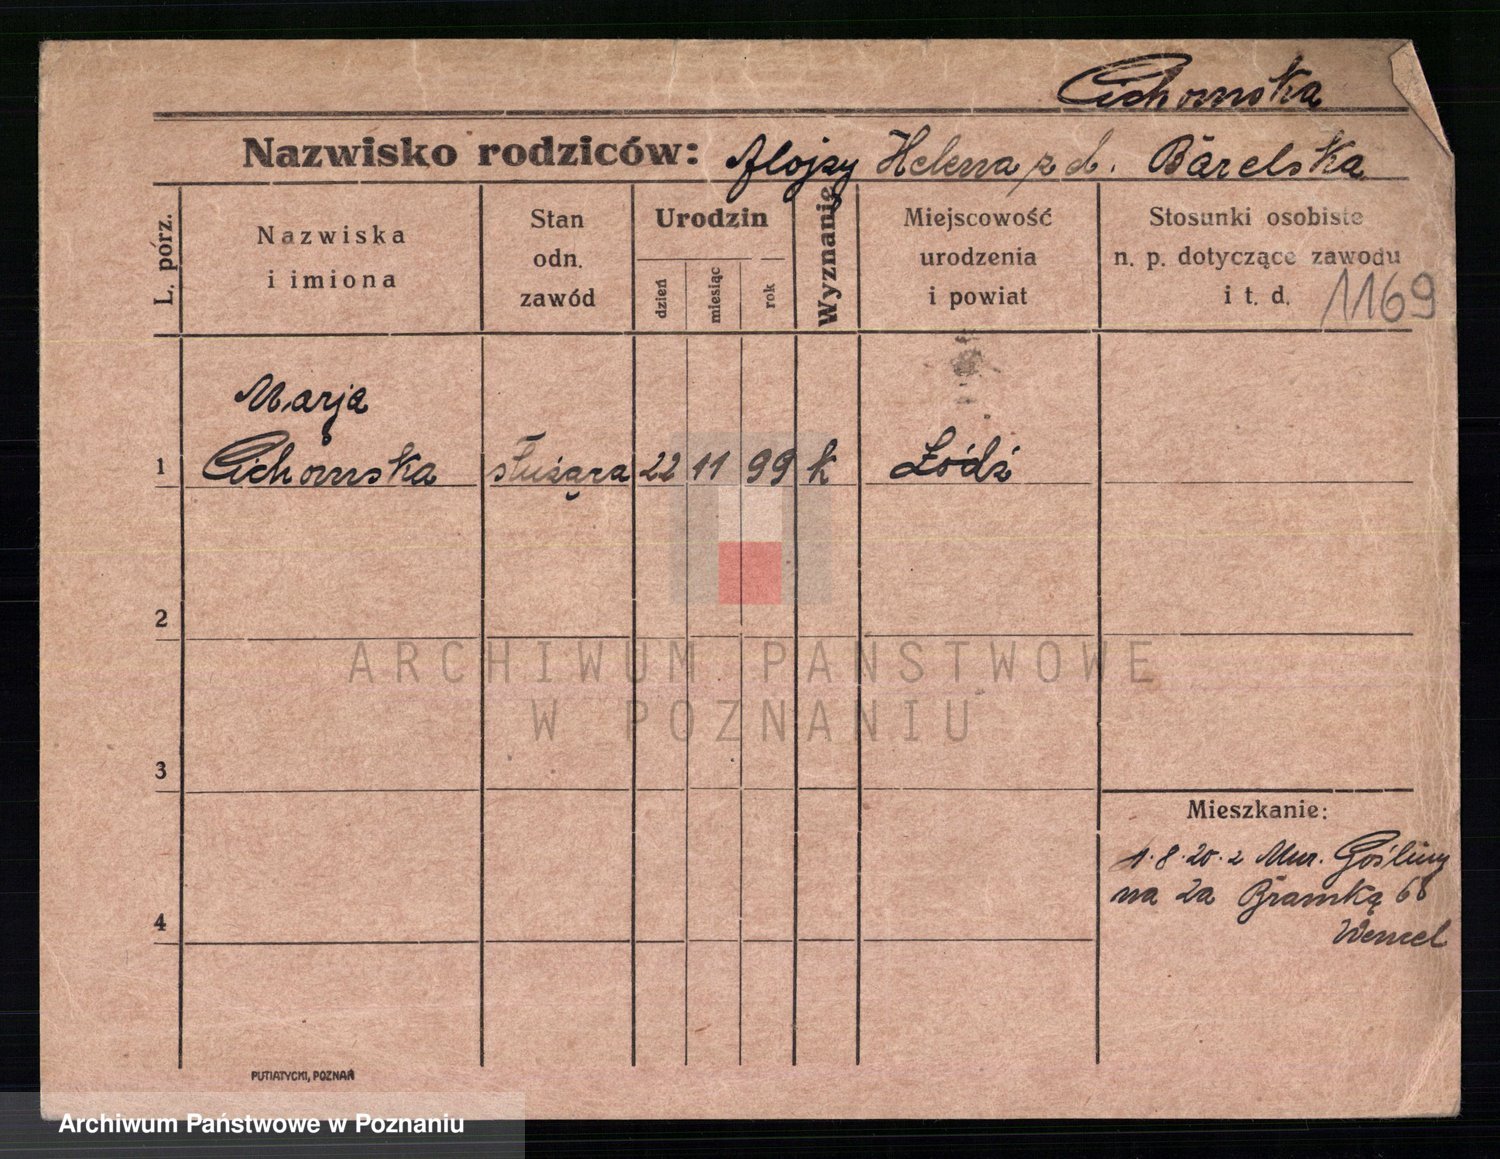 Cichomska
Nazwisko rodziców: Alojzy Helena z d. Barelska
L. porz.
Nazwiska
i imiona
Stan
odn.
zawód
Urodzin
dzień
miesiąc
rok
Wyznanie
Miejscowość
urodzenia
i powiat
Stosunki osobiste
n. p. dotyczące zawodu
i t. d.
1169
Marja
1 Cichomska służąca 22 11 99 k Łódź
2
3
4
Mieszkanie:
1.8.20. z Mur. Gośliny
na 2a Bramką 6
Wenzel
PUTIATYCKI, POZNAŃ
ARCHIWUM PAŃSTWOWE
W POZNANIU
Archiwum Państwowe w Poznaniu